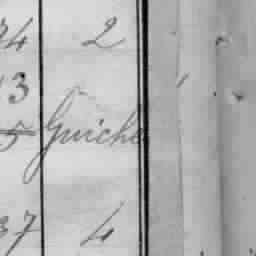 74 2
13
5 Guiche
37 4